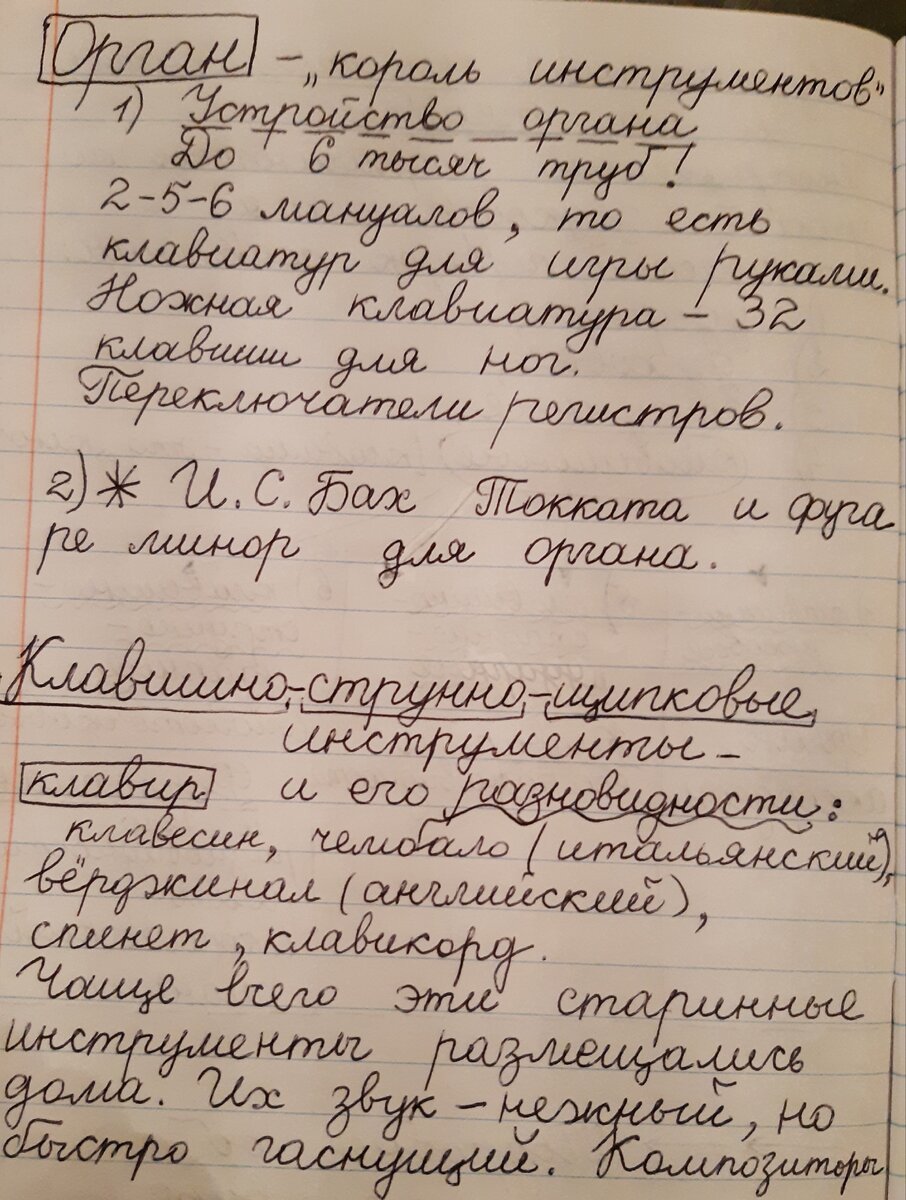 Орган - „король инструментов"
1) Устройство органа
До 6 тысяч труб!
2-5-6 мануалов, то есть
клавиатур для игры руками.
Ножная клавиатура - 32
клавиши для ног.
Переключатели регистров.
2) * И.С. Бах Токката и фуга
ре минор для органа.
Клавишно-струнно-щипковые
инструменты -
клавир и его разновидности:
клавесин, чембало (итальянский),
вёрджинал (английский),
спинет, клавикорд.
Чаще всего эти старинные
инструменты размещались
дома. Их звук - нежный, но
быстро гаснущий. Композиторы